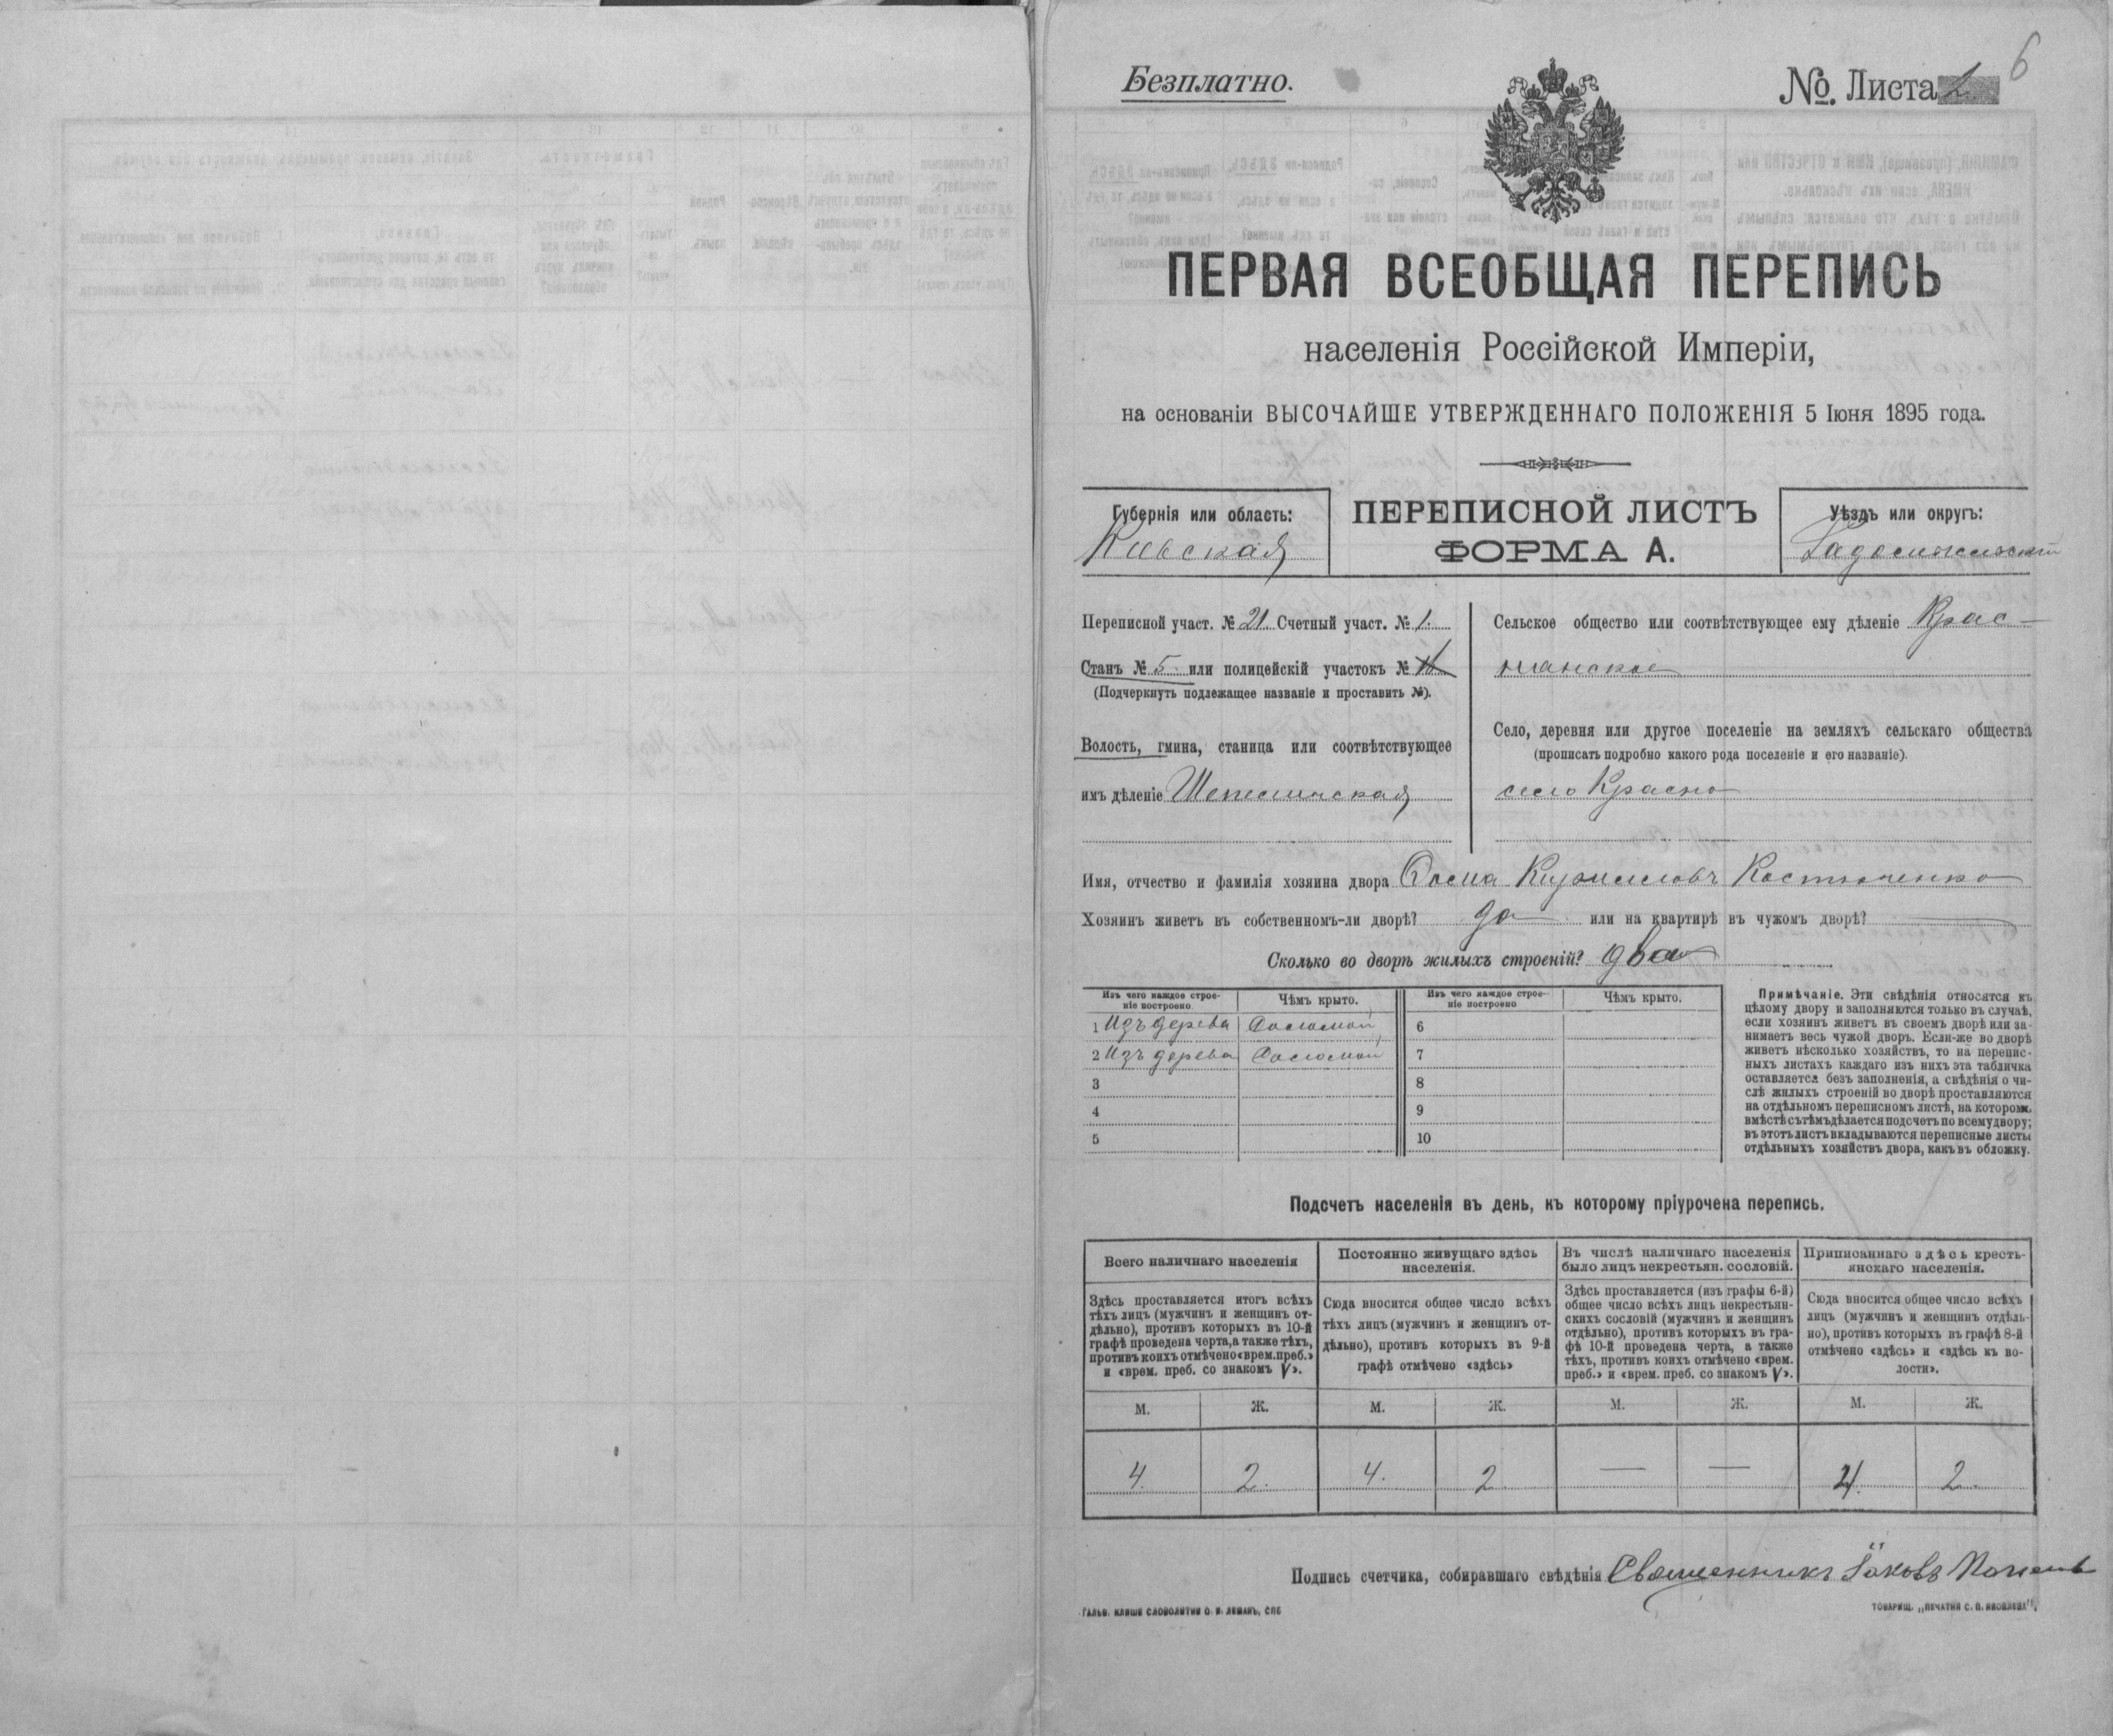 6
Безплатно.
№. Листа 2
ПЕРВАЯ ВСЕОБЩАЯ ПЕРЕПИСЬ
населенія Россійской Имперіи,
на основаніи ВЫСОЧАЙШЕ УТВЕРЖДЕННАГО ПОЛОЖЕНІЯ 5 Іюня 1895 года.
Губернія или область:
Кіевская
ПЕРЕПИСНОЙ ЛИСТЪ
ФОРМА А.
Уѣздъ или округъ:
Радомысльскій
Переписной участ. № 21. Счетный участ. № 1.
Станъ № 5. или полицейскій участокъ №
(Подчеркнуть подлежащее названіе и проставить №).
Волость, гмина, станица или соотвѣтствующее
имъ дѣленіе Шепеличская
Сельское общество или соотвѣтствующее ему дѣленіе Крас-
нянское
Село, деревня или другое поселеніе на земляхъ сельскаго общества
(прописать подробно какого рода поселеніе и его названіе).
село Красно
Имя, отчество и фамилія хозяина двора Фома Кирилловъ Костюченко
Хозяинъ живетъ въ собственномъ-ли дворѣ? да или на квартирѣ въ чужомъ дворѣ? —
Сколько во дворѣ жилыхъ строеній? два
Изъ чего каждое строе-
ніе построено
Чѣмъ крыто.
Изъ чего каждое строе-
ніе построено
Чѣмъ крыто.
1 Изъ дерева Соломой 6
2 Изъ дерева Соломой 7
3 8
4 9
5 10
Примѣчаніе. Эти свѣдѣнія относятся къ
цѣлому двору и заполняются только въ случаѣ,
если хозяинъ живетъ въ своемъ дворѣ или за-
нимаетъ весь чужой дворъ. Если-же во дворѣ
живетъ нѣсколько хозяйствъ, то на перепис-
ныхъ листахъ каждаго изъ нихъ эта табличка
оставляется безъ заполненія, а свѣдѣнія о чи-
слѣ жилыхъ строеній во дворѣ проставляются
на отдѣльномъ переписномъ листѣ, на которомъ
вмѣстѣ съ тѣмъ дѣлается подсчетъ по всему двору;
въ этотъ листъ вкладываются переписные листы
отдѣльныхъ хозяйствъ двора, какъ въ обложку.
Подсчетъ населенія въ день, къ которому пріурочена перепись.
Всего наличнаго населенія
Здѣсь проставляется итогъ всѣхъ
тѣхъ лицъ (мужчинъ и женщинъ от-
дѣльно), противъ которыхъ въ 10-й
графѣ проведена черта, а также тѣхъ,
противъ коихъ отмѣчено «врем. преб.»
и «врем. преб. со знакомъ V».
Постоянно живущаго здѣсь
населенія.
Сюда вносится общее число всѣхъ
тѣхъ лицъ (мужчинъ и женщинъ от-
дѣльно), противъ которыхъ въ 9-й
графѣ отмѣчено «здѣсь»
Въ числѣ наличнаго населенія
было лицъ некрестьян. сословій.
Здѣсь проставляется (изъ графы 6-й)
общее число всѣхъ лицъ некрестьян-
скихъ сословій (мужчинъ и женщинъ
отдѣльно), противъ которыхъ въ гра-
фѣ 10-й проведена черта, а также
тѣхъ, противъ коихъ отмѣчено «врем.
преб.» и «врем. преб. со знакомъ V».
Приписаннаго здѣсь кресть-
янскаго населенія.
Сюда вносится общее число всѣхъ
лицъ (мужчинъ и женщинъ отдѣль-
но), противъ которыхъ въ графѣ 8-й
отмѣчено «здѣсь» и «здѣсь къ во-
лости».
М. Ж. М. Ж. М. Ж. М. Ж.
4. 2. 4. 2 — — 4. 2.
Подпись счетчика, собиравшаго свѣдѣнія Священникъ Іаковъ
ГАЛЬВ. КЛИШЕ СЛОВОЛИТНИ О. И. ЛЕМАНЪ, СПБ
ТОВАРИЩ. „ПЕЧАТНЯ С. П. ЯКОВЛЕВА".